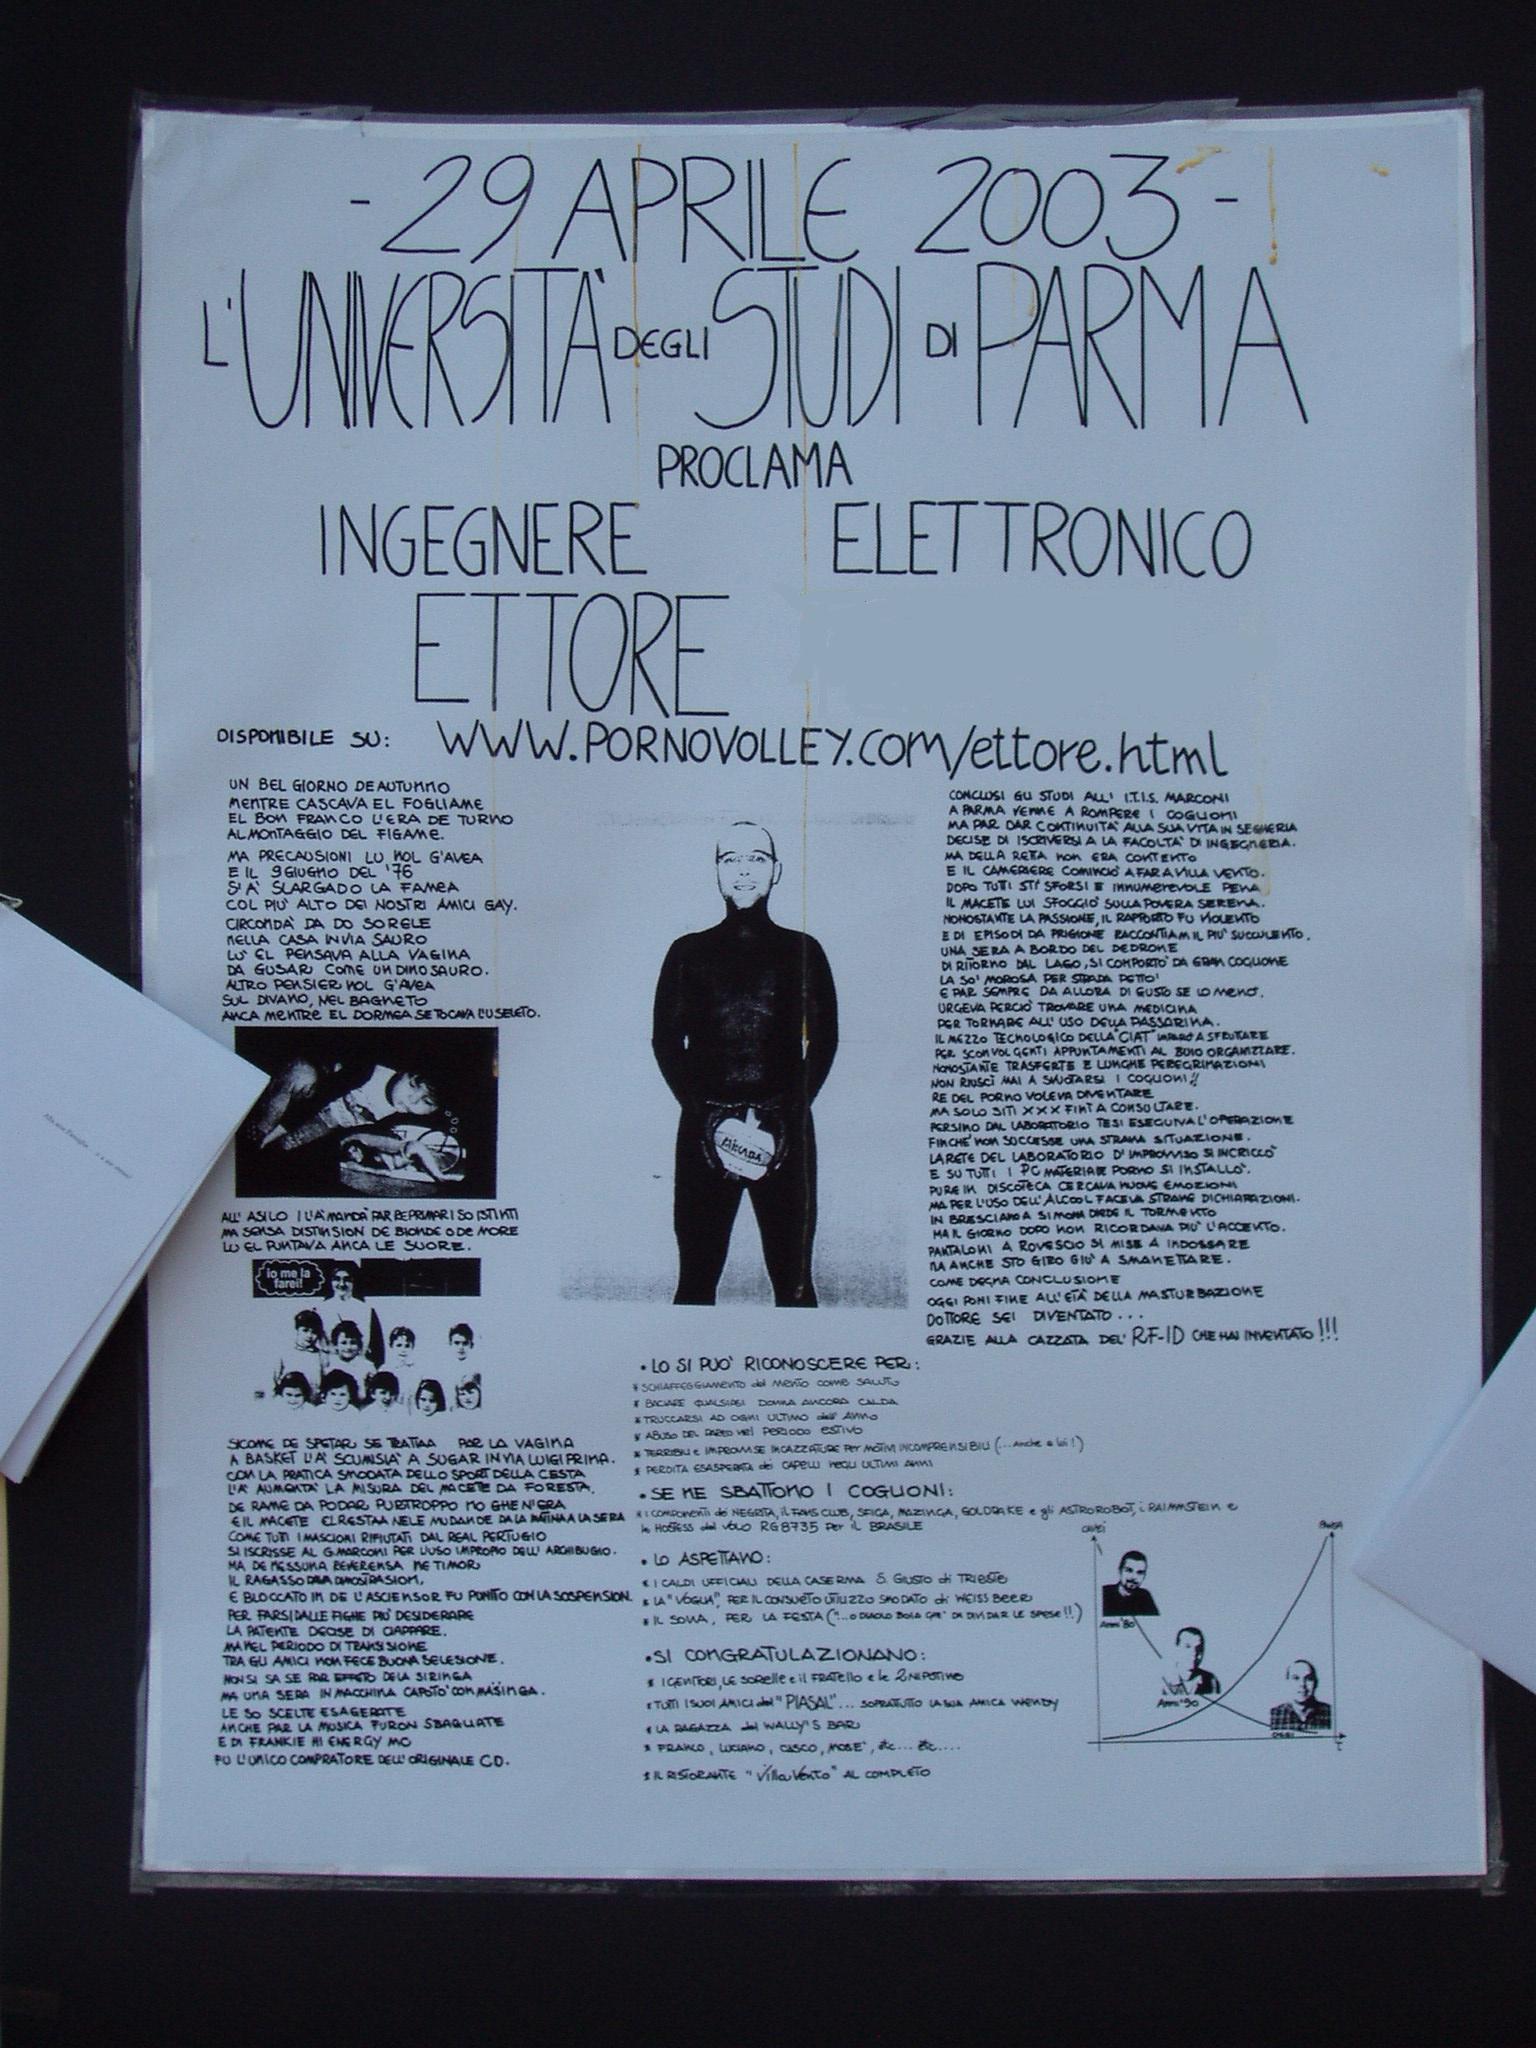 - 29 APRILE 2003 -
L'UNIVERSITÀ DEGLI STUDI DI PARMA
PROCLAMA
INGEGNERE ELETTRONICO
ETTORE
DISPONIBILE SU: WWW.PORNOVOLLEY.COM/ettore.html
UN BEL GIORNO DE AUTUNNO
MENTRE CASCAVA EL FOGLIAME
EL BON FRANCO L'ERA DE TURNO
AL MONTAGGIO DEL FIGAME.
MA PRECAUSIONI LU NOL G'AVEA
E IL 9 GIUGNO DEL '76
S'A' SLARGADO LA FAMEA
COL PIU' ALTO DEI NOSTRI AMICI GAY.
CIRCONDÀ DA DO SORELE
NELLA CASA IN VIA SAURO
LU' EL PENSAVA ALLA VAGINA
DA GUSAR COME UN DINOSAURO.
ALTRO PENSIER NOL G'AVEA
SUL DIVANO, NEL BAGNETO
ANCA MENTRE EL DORMEA SE TOCAVA L'USELETO.
ALL' ASILO I L'A' MANDÀ PAR REPRIMARI SO ISTINTI
MA SENSA DISTINSION DE BIONDE O DE MORE
LU EL PUNTAVA ANCA LE SUORE.
io me la
farei!
SICOME DE SPETAR SE TRATAA PAR LA VAGINA
A BASKET L'A' SCUMISIÀ A SUGAR IN VIA LUIGI PRINA.
CON LA PRATICA SMODATA DELLO SPORT DELLA CESTA
L'A' AUMENTÀ LA MISURA DEL MACETE DA FORESTA.
DE RAME DA PODAR PURTROPPO NO GHE N'ERA
E IL MACETE EL RESTAA NELE MUDANDE DA LA MATINA A LA SERA
COME TUTI I MASCIONI RIFIUTATI DAL REAL PERTUGIO
SI ISCRISSE AL G.MARCONI PER L'USO IMPROPIO DELL' ARCHIBUGIO.
MA DE NESSUNA REVERENSA NE TIMOR
IL RAGASSO DAVA DIMOSTRASION,
E BLOCCATO IN DE L'ASCIENSOR FU PUNITO CON LA SOSPENSION.
PER FARSI DALLE FIGHE PIU' DESIDERARE
LA PATENTE DECISE DI CIAPPARE.
MA NEL PERIODO DI TRANSISIONE
TRA GLI AMICI NON FECE BUONA SELESIONE.
NON SI SA SE PAR EFFETO DELA SIRINGA
MA UNA SERA IN MACCHINA CAPOTO' CON MASINGA.
LE SO SCELTE ESAGERATE
ANCHE PAR LA MUSICA FURON SBAGLIATE
E DI FRANKIE HI ENERGY MO
FU L'UNICO COMPRATORE DELL'ORIGINALE CD.
ARCADA
CONCLUSI GLI STUDI ALL' I.T.I.S. MARCONI
A PARMA VENNE A ROMPERE I COGLIONI
MA PAR DAR CONTINUITA' ALLA SUA VITA IN SEGHERIA
DECISE DI ISCRIVERSI A LA FACOLTA' DI INGEGNERIA.
MA DELLA RETTA NON ERA CONTENTO
E IL CAMERIERE COMINCIO' A FAR A VILLA VENTO.
DOPO TUTI STI' SFORSI E INNUMEREVOLE PENA
IL MACETE LUI SFOGGIO' SULLA POVERA SERENA.
NONOSTANTE LA PASSIONE, IL RAPPORTO FU VIOLENTO
E DI EPISODI DA PRIGIONE RACCONTIAM IL PIU' SUCCULENTO.
UNA SERA A BORDO DEL DEDRONE
DI RITORNO DAL LAGO, SI COMPORTO' DA GRAN COGLIONE
LA SO' MOROSA PER STRADA PETTO'
E PAR SEMPRE DA ALLORA DI GUSTO SE LO MENO'.
URGEVA PERCIO' TROVARE UNA MEDICINA
PER TORNARE ALL' USO DELLA PASSARINA.
IL MEZZO TECNOLOGICO DELLA "CIAT" IMPARO A SFRUTARE
PER SCONVOLGENTI APPUNTAMENTI AL BUIO ORGANIZZARE.
NONOSTANTE TRASFERTE E LUNGHE PEREGRINAZIONI
NON RIUSCI MAI A SVUOTARSI I COGLIONI!!
RE DEL PORNO VOLEVA DIVENTARE
MA SOLO SITI XXX FINI A CONSULTARE.
PERSINO DAL LABORATORIO TESI ESEGUIVA L'OPERAZIONE
FINCHE' NON SUCCESSE UNA STRANA SITUAZIONE.
LA RETE DEL LABORATORIO D'IMPROVVISO SI INCRICCO'
E SU TUTTI I PC MATERIALE PORNO SI INSTALLO'.
PURE IN DISCOTECA CERCAVA NUOVE EMOZIONI
MA PER L'USO DELL' ALCOOL FACEVA STRANE DICHIARAZIONI.
IN BRESCIANO A SIMONA DIEDE IL TORMENTO
MA IL GIORNO DOPO NON RICORDAVA PIU' L'ACCENTO.
PANTALONI A ROVESCIO SI MISE A INDOSSARE
MA ANCHE STO GIRO GIU' A SMANETTARE.
COME DEGNA CONCLUSIONE
OGGI PONI FINE ALL'ETÀ DELLA MASTURBAZIONE
DOTTORE SEI DIVENTATO...
GRAZIE ALLA CAZZATA DEL' RF-ID CHE HAI INVENTATO!!!
• LO SI PUO' RICONOSCERE PER:
* SCHIAFFEGGIAMENTO del MENTO COME SALUTO
* BACIARE QUALSIASI DONNA ANCORA CALDA
* TRUCCARSI AD OGNI ULTIMO dell' ANNO
* ABUSO DEL PAREO nel PERIODO ESTIVO
* TERRIBILI e IMPROVVISE INCAZZATURE PER MOTIVI INCOMPRENSIBILI (...Anche a lui!)
* PERDITA ESASPERATA dei CAPELLI NEGLI ULTIMI ANNI
• SE NE SBATTONO I COGLIONI:
* I COMPONENTI dei NEGRITA, IL FANS CLUB, SFIGA, MAZINGA, GOLDRAKE e gli ASTROROBOT, i RAIMMSTEIN e
le HOSTESS del VOLO RG8735 PER IL BRASILE
• LO ASPETTANO:
* I CALDI UFFICIALI DELLA CASERMA S. GIUSTO di TRIESTE
* LA "VOGLIA", PER IL CONSUETO UTILIZZO SMODATO di WEISS BEER
* IL SONA, PER LA FESTA ("...O DIAOLO BOIA GHE' DA DIVIDAR LE SPESE!!)
• SI CONGRATULAZIONANO:
* I GENITORI, LE SORELLE e IL FRATELLO e le 2 NIPOTINE
* TUTTI I SUOI AMICI del "PIASAL"... SOPRATUTTO LA SUA AMICA WENDY
* LA RAGAZZA del WALLY'S BAR
* FRANCO, LUCIANO, CASCO, MOSE', etc... etc....
* IL RISTORANTE "Villa Vento" AL COMPLETO
Anni '80
Anni '90
OGGI